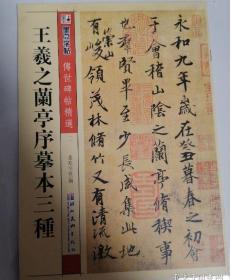 墨点字帖
傳世碑帖精選
王羲之蘭亭序摹本三種
永和九年歲在癸丑暮春之初會
于會稽山陰之蘭亭脩禊事
也羣賢畢至少長咸集此地
有崇山峻領茂林脩竹又有清流激